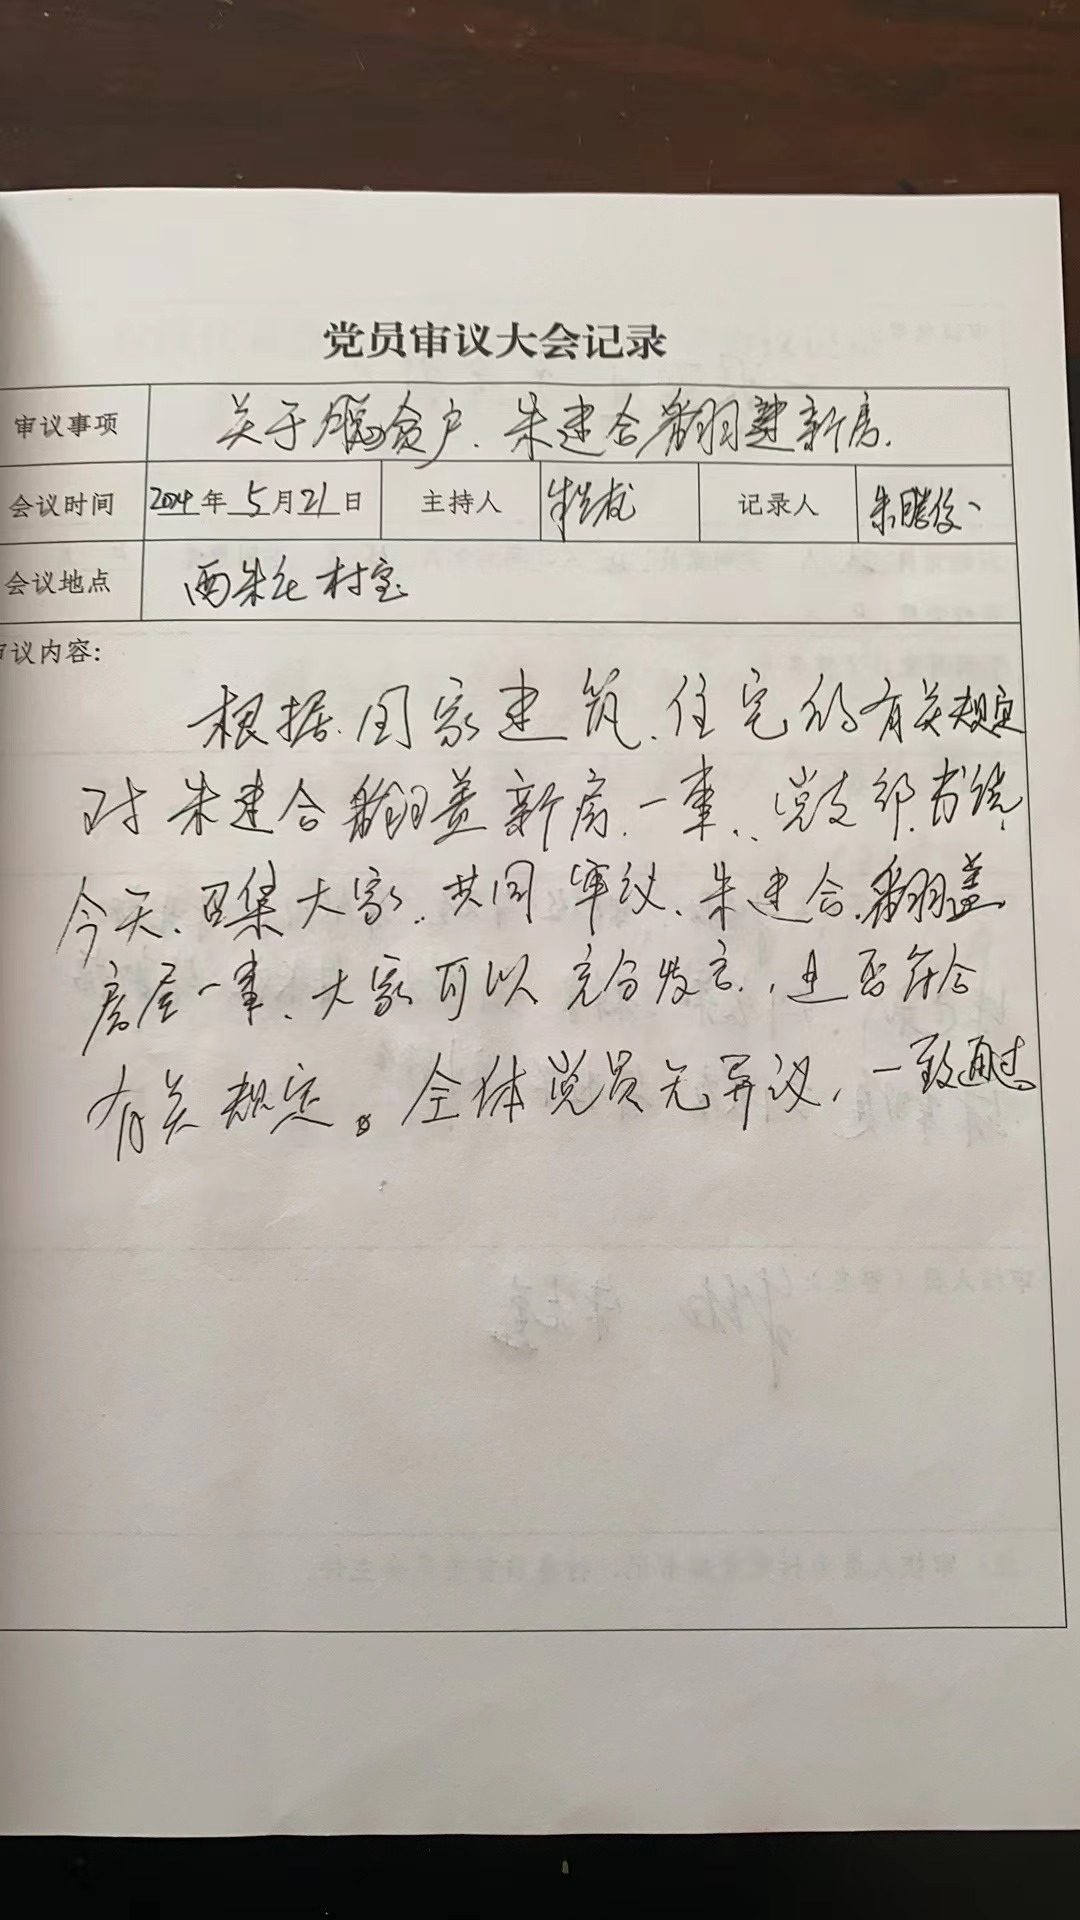 党员审议大会记录
审议事项 关于脱贫户、朱建合翻建新房.
会议时间 2024年5月21日 主持人 记录人 朱腾俊
会议地点 西朱庄村室
审议内容:
根据国家建筑、住宅的有关规定
对朱建合翻盖新房一事、党支部
今天、召集大家、共同审议、朱建合翻盖
房屋一事、大家可以充分发言,是否符合
有关规定。全体党员无异议,一致通过